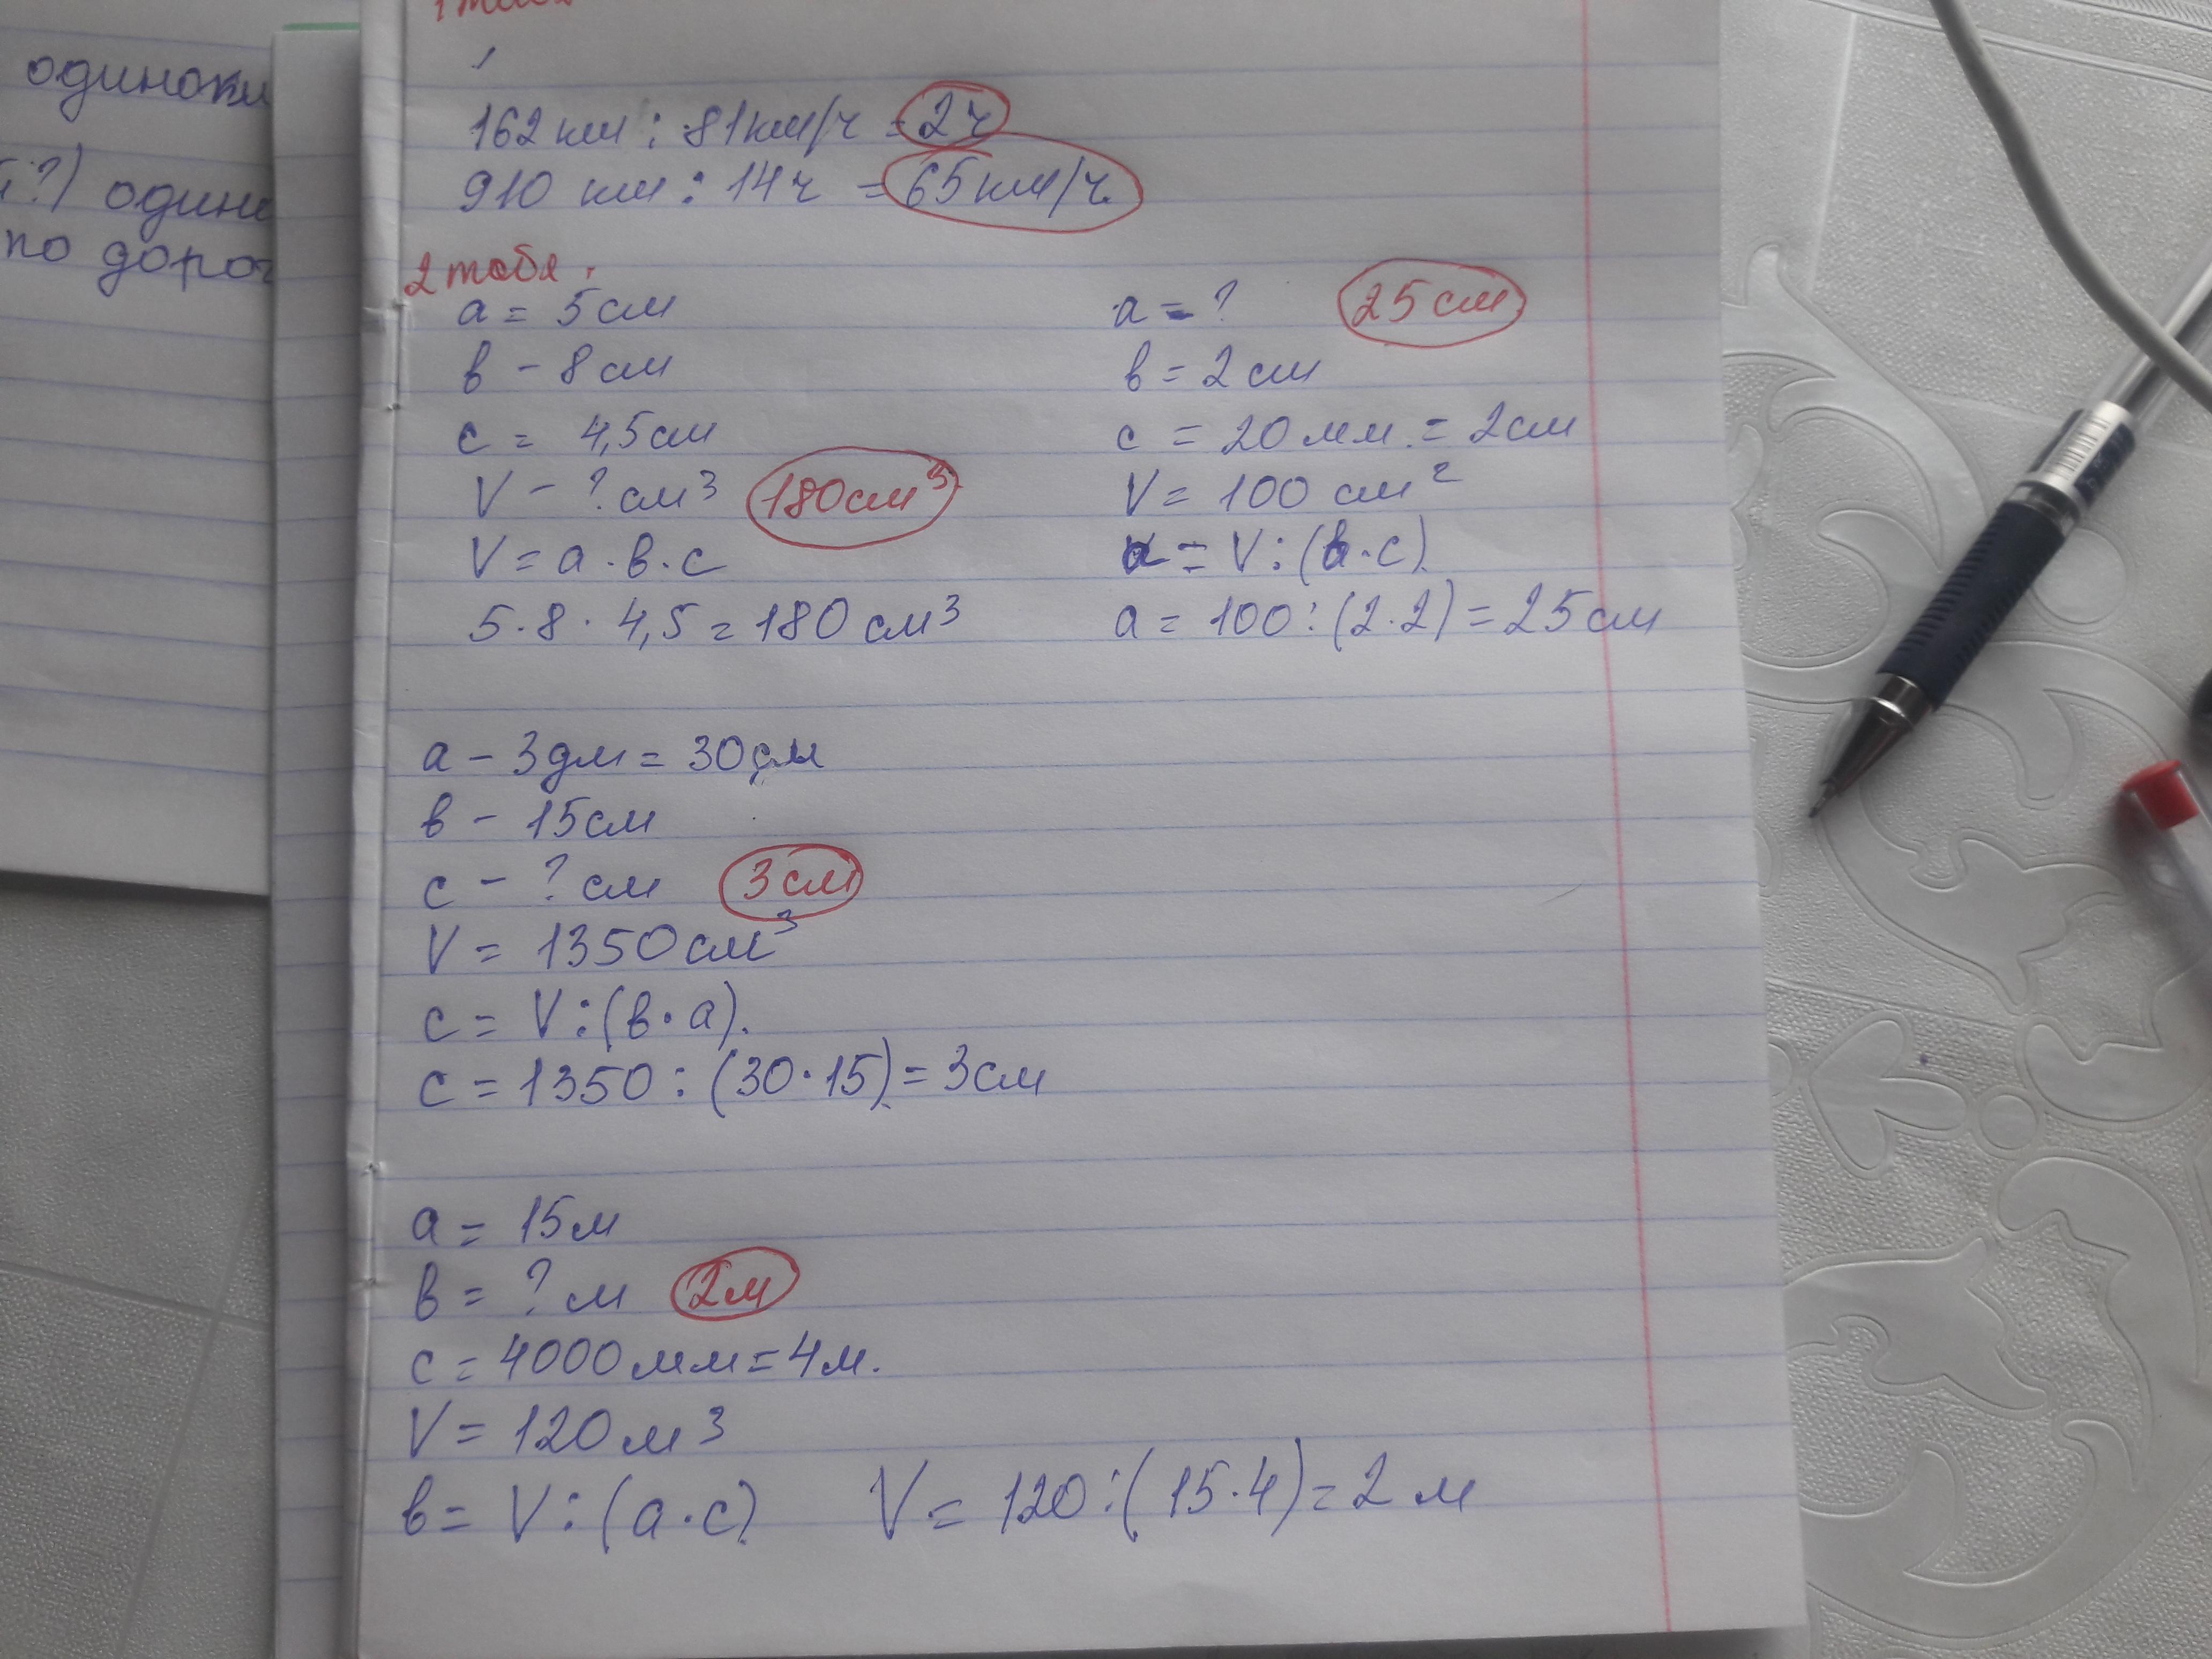 одиноки
?) одино
по дорог
162 км : 81км/ч = 2ч
910 км : 14ч = 65км/ч.
2 табл.
a = 5см
в - 8см
c = 4,5см
V - ? см³ 180см³
V = a · в · c
5 · 8 · 4,5 = 180 см³
a = ? 25см
в = 2см
c = 20мм. = 2см
V = 100 см²
a = V : (в · c).
a = 100 : (2 · 2) = 25см
a - 3дм = 30см
в - 15см
c - ? см 3см
V = 1350см³
c = V : (в · a).
c = 1350 : (30 · 15) = 3см
a = 15м
в = ? м 2м
c = 4000мм = 4м.
V = 120м³
в = V : (a · c) V = 120 : (15 · 4) = 2 м